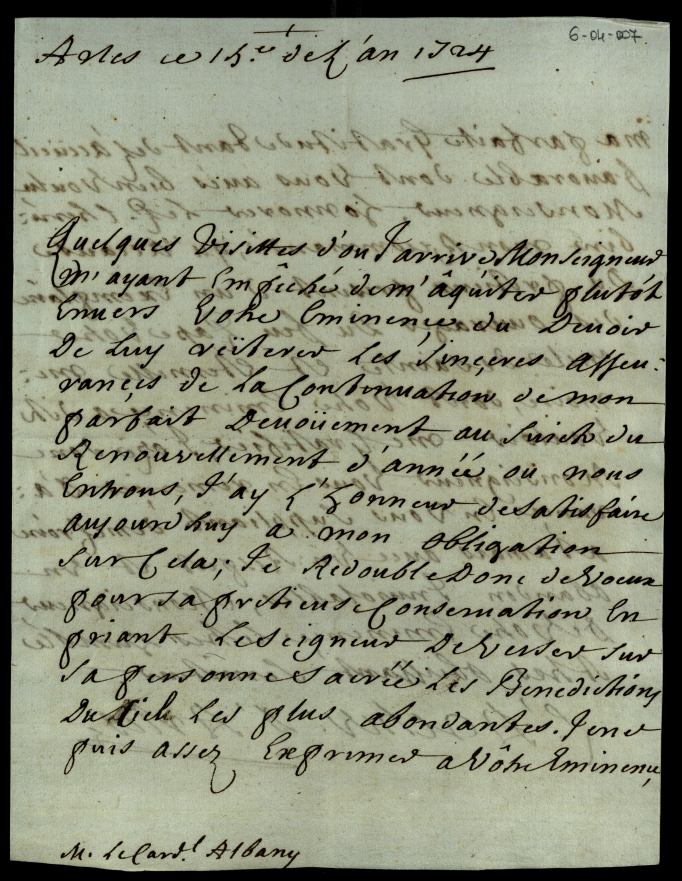 6-04-007
Arles ce 15.e de l'an 1724
Quelques Visittes d'ou J'arrive Monseigneur
m'ayant Empêché de m'âquiter plutôt
Envers Votre Eminençe du Devoir
De Luy reïterer Les Sinçeres Asseu:
rançes de La Continuation de mon
parfait Devoüement au Suieh du
Renouvellement d'année ou nous
Entrons, J'ay L'honneur de satisfaire
aujourd huy a mon obligation
sur Cela; Je Redouble Donc de Voeux
pour sa pretieuse Conservation En
priant Le seigneur De Verser sur
sa personne sacrée Les Benedictions
Du Ciel Les plus abondantes. Je ne
puis assez Exprimer a Vôtre Eminençe
M. Le Card.l Albany